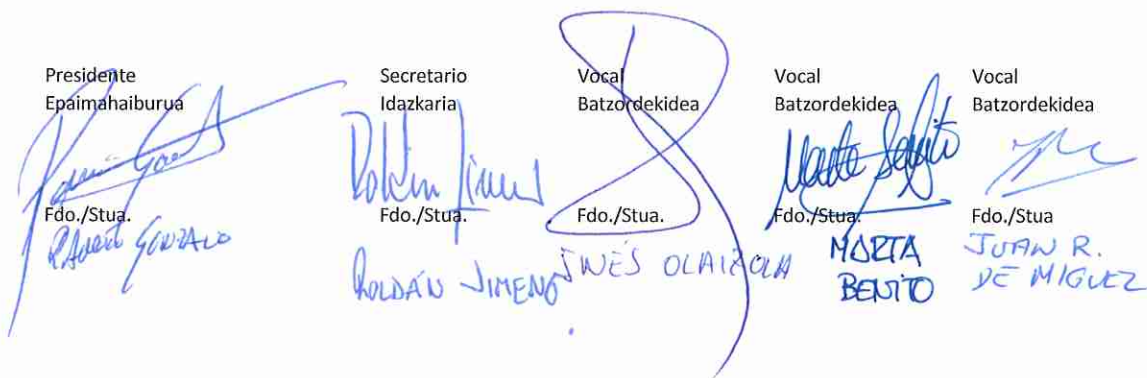 Presidente
Epaimahaiburua
Fdo./Stua.
GONZALO
Secretario
Idazkaria
Fdo./Stua.
ROLDÁN JIMENO
Vocal
Batzordekidea
Fdo./Stua.
INÉS OLAIZOLA
Vocal
Batzordekidea
Marta Benito
Fdo./Stua.
MARTA
BENITO
Vocal
Batzordekidea
Fdo./Stua
JUAN R.
DE MIGUEL